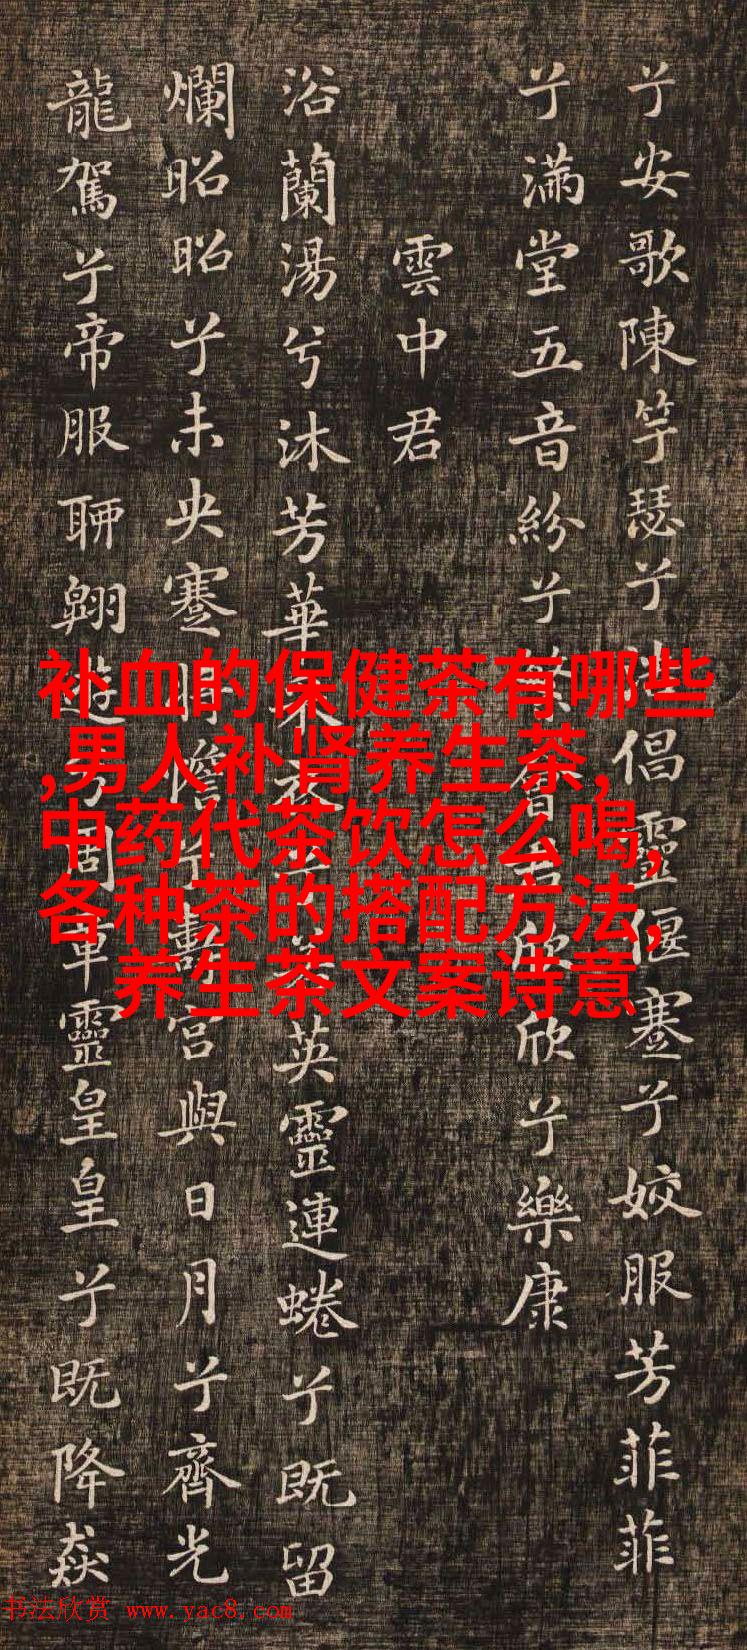 兮安歌陳竽瑟兮浩倡靈偃蹇兮姣服芳菲菲
兮滿堂五音紛兮繁會君欣欣兮樂康
雲中君
浴蘭湯兮沐芳華采衣兮若英靈連蜷兮既留
爛昭昭兮未央蹇將憺兮壽宮與日月兮齊光
龍駕兮帝服聊翺遊兮周章靈皇皇兮既降猋
补血的保健茶有哪些
,男人补肾养生茶,
中药代茶饮怎么喝,
各种茶的搭配方法,
养生茶文案诗意
书法欣赏 www.yac8.com